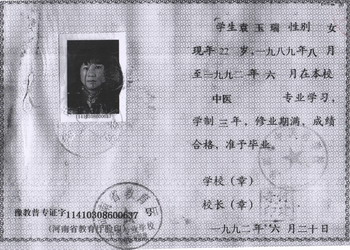 学生袁玉瑞 性别 女
现年22岁，一九八九年八月
至一九九二年六月在本校
中医 专业学习，
学制三年，修业期满，成绩
合格，准予毕业。
学校（章）
校长（章）
一九九二年六月二十日
11410308600637
豫教普专证字11410308600637号
（河南省教育厅验印